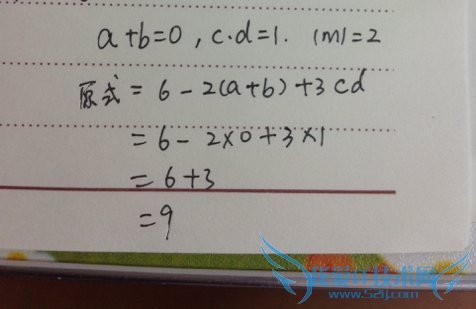 a+b=0, c·d=1. |m|=2
原式 = 6 - 2(a+b) + 3cd
= 6 - 2×0 + 3×1
= 6+3
= 9
www.52ij.com